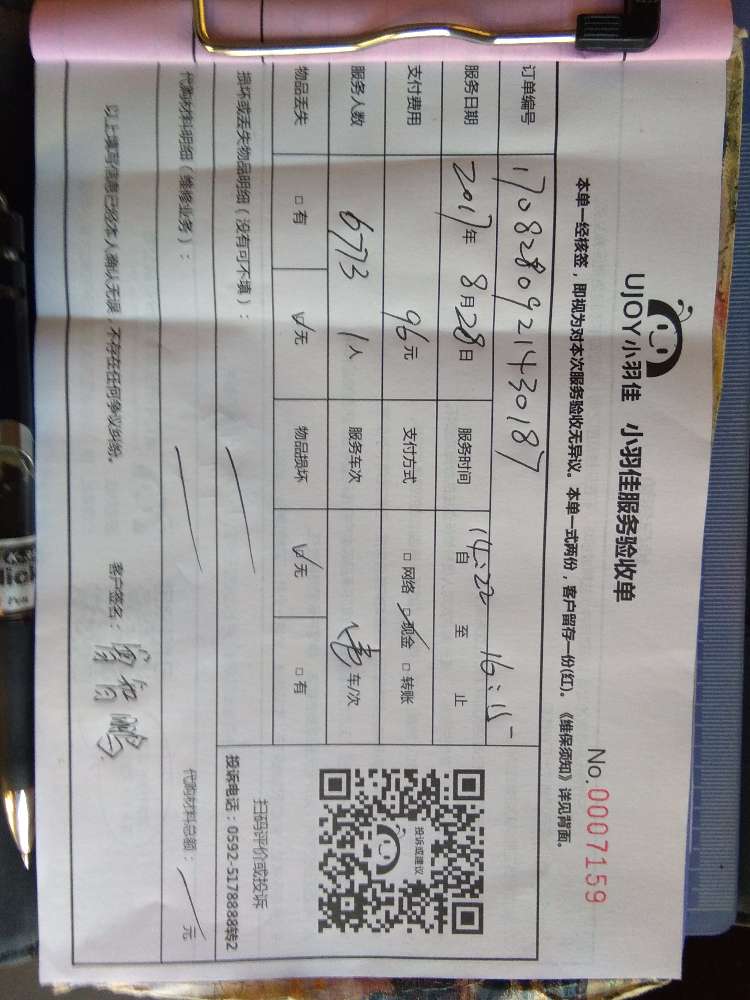 UJOY小羽佳 小羽佳服务验收单
No.0007159
本单一经核签，即视为对本次服务验收无异议。本单一式两份，客户留存一份(红)。《维保须知》详见背面。
订单编号 170828092143018７
服务日期 2017年 8月28日 服务时间 自14:22 至16:15 止
支付费用 96元 支付方式 □ 网络 ☑ 现金 □ 转账
服务人数 6773 1人 服务车次 车/次
物品丢失 □ 有 ☑ 无 物品损坏 ☑ 无 □ 有
损坏或丢失物品明细（没有可不填）：
投诉或建议
扫码评价或投诉
投诉电话：0592-5178888转2
代购材料明细（维修业务）：
代购材料总额： 元
以上填写信息已经本人确认无误，不存在任何争议纠纷。
客户签名：